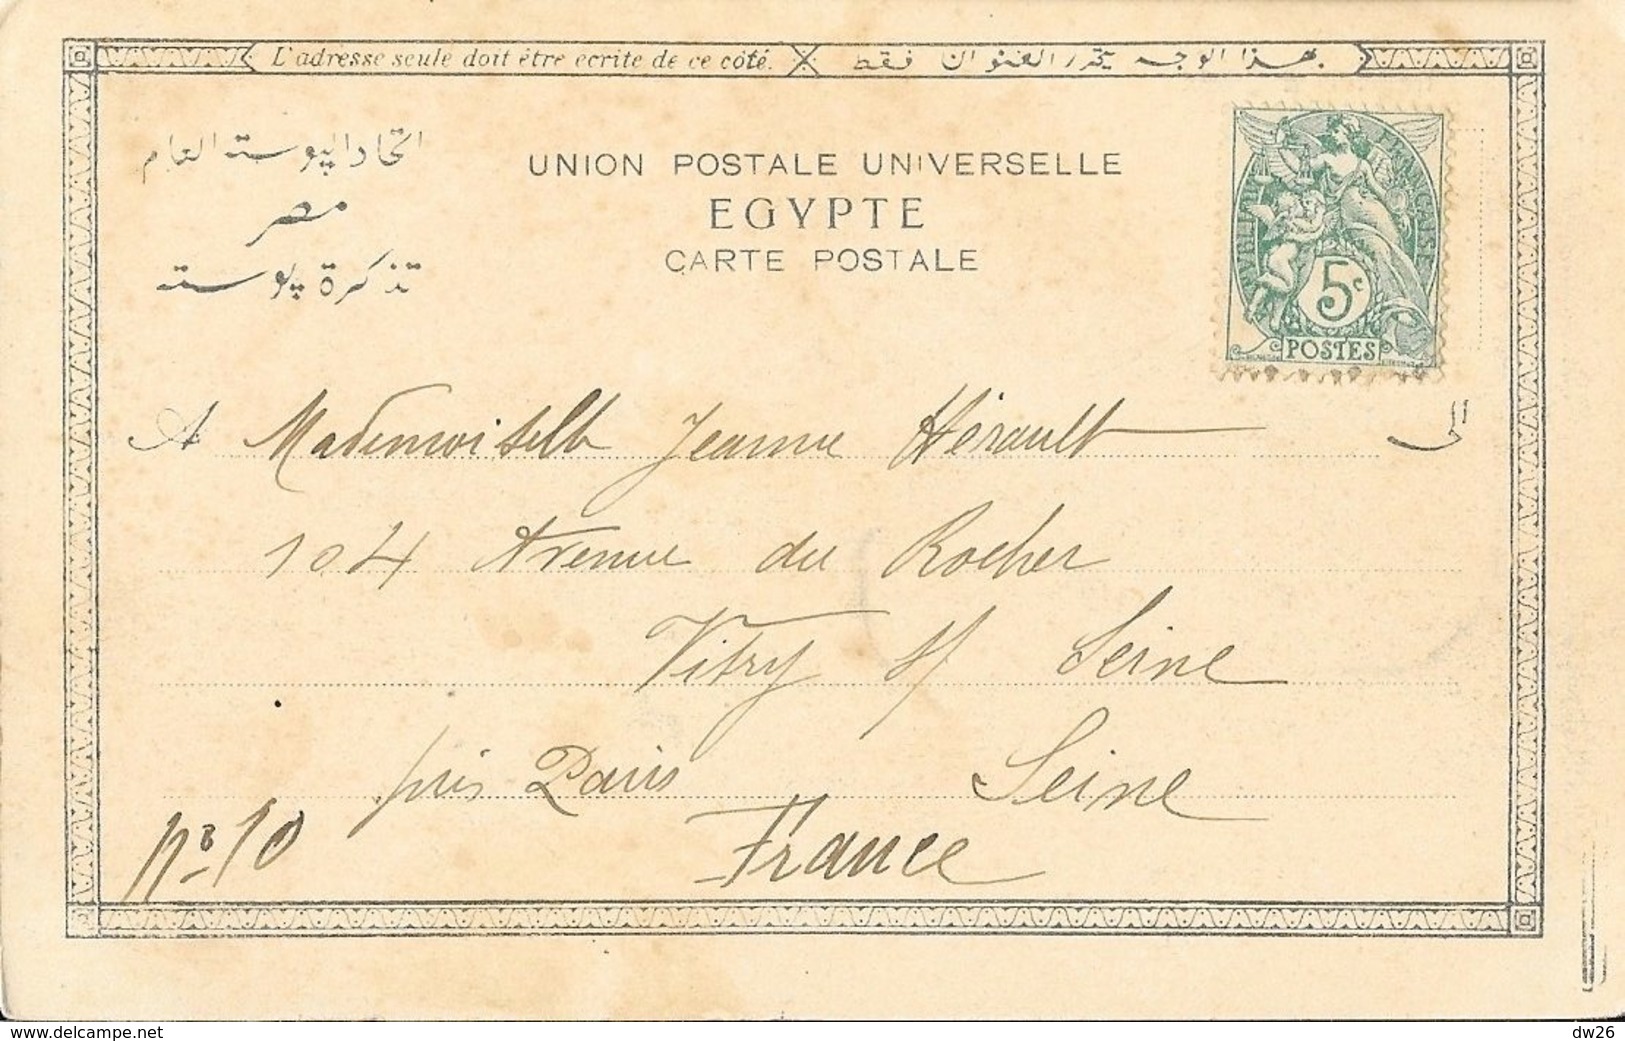 L'adresse seule doit être ecrite de ce côté.
بهذا الوجه يحرر العنوان فقط
اتحاد البوسته العام
مصر
تذكرة بوسته
UNION POSTALE UNIVERSELLE
EGYPTE
CARTE POSTALE
RÉPUBLIQUE FRANÇAISE
5c
POSTES
A Mademoiselle Jeanne Hérault الى
104 Avenue du Rocher
Vitry s/ Seine
près Paris Seine
No 10 France
dw26